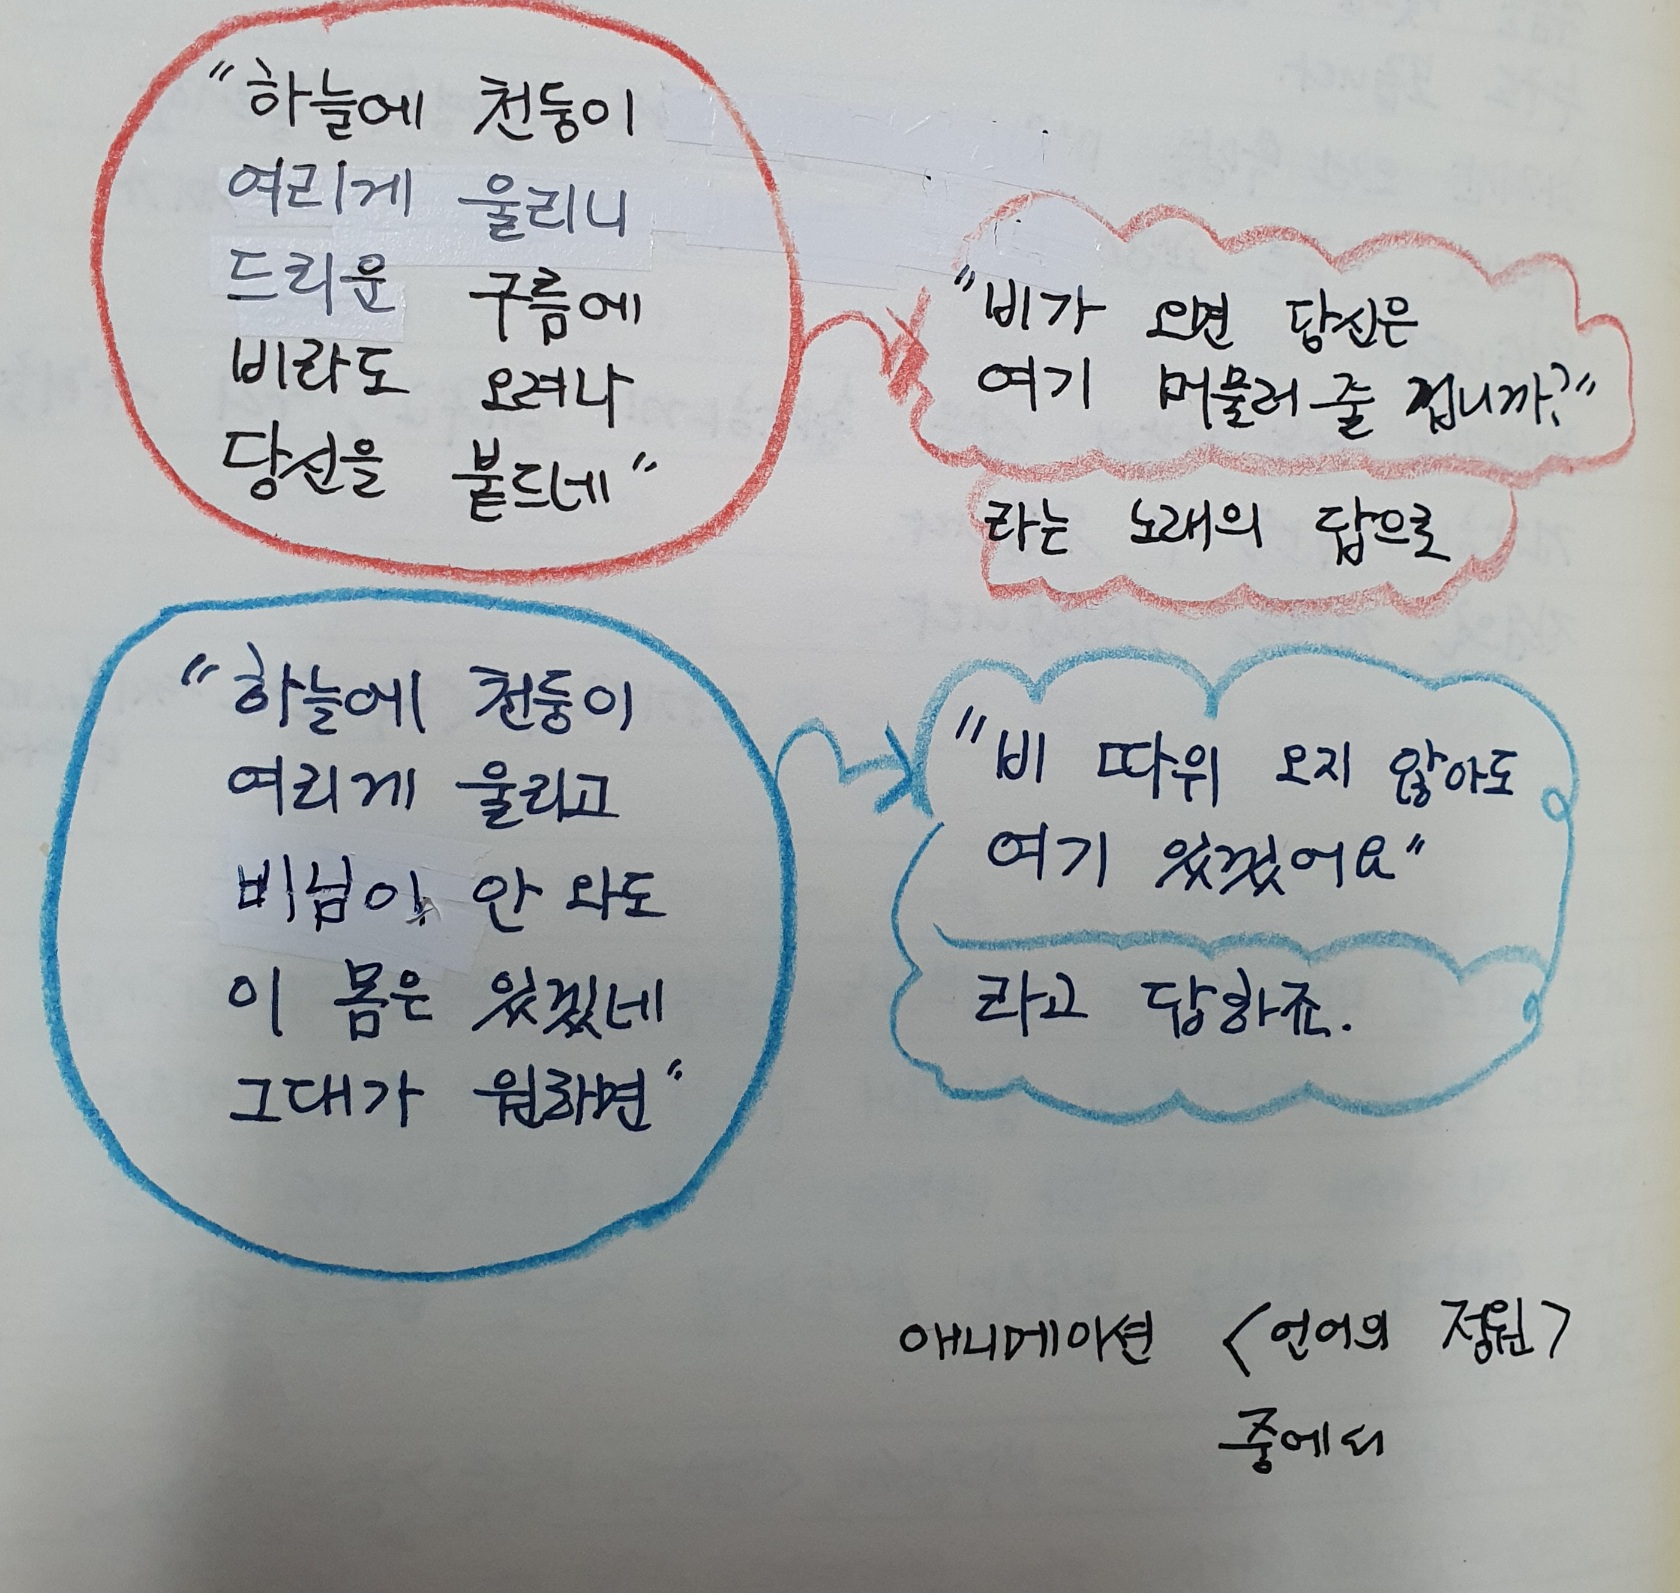 "하늘에 천둥이
여리게 울리니
드리운 구름에
비라도 오려나
당신을 붙드네"
"비가 오면 당신은
여기 머물러 줄 겁니까?"
라는 노래의 답으로
"하늘에 천둥이
여리게 울리고
비님이 안 와도
이 몸은 있겠네
그대가 원하면"
"비 따위 오지 않아도
여기 있겠어요"
라고 답하죠.
애니메이션 <언어의 정원>
중에서